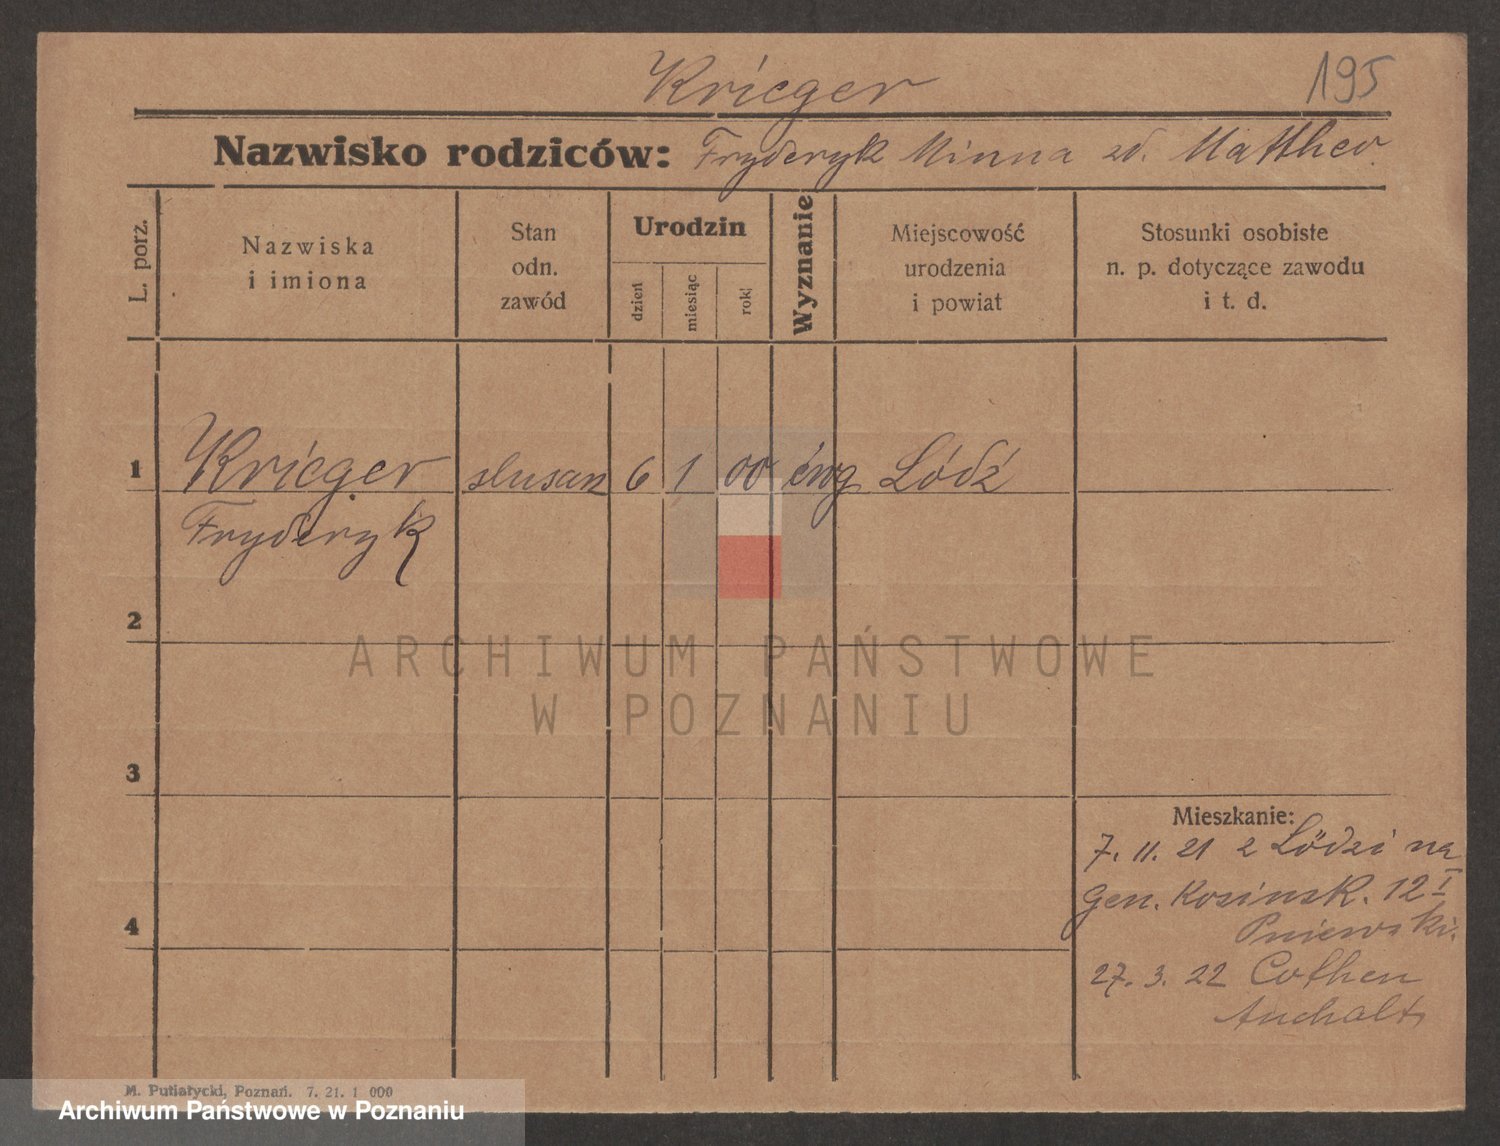 Krieger
195
Nazwisko rodziców: Fryderyk Minna zd. Matthev.
L. porz.
Nazwiska
i imiona
Stan
odn.
zawód
Urodzin
dzień
miesiąc
rok
Wyznanie
Miejscowość
urodzenia
i powiat
Stosunki osobiste
n. p. dotyczące zawodu
i t. d.
1
Krieger slusarz 6 1 00 ewg Łódź
Fryderyk
2
ARCHIWUM PAŃSTWOWE
W POZNANIU
3
Mieszkanie:
7. 11. 21 z Łodzi na
Gen. Kosinsk. 12 I
Pniewski.
4
27. 3. 22 Cothen
Anchalt
M. Putiatycki, Poznań. 7. 21. 1 000
Archiwum Państwowe w Poznaniu